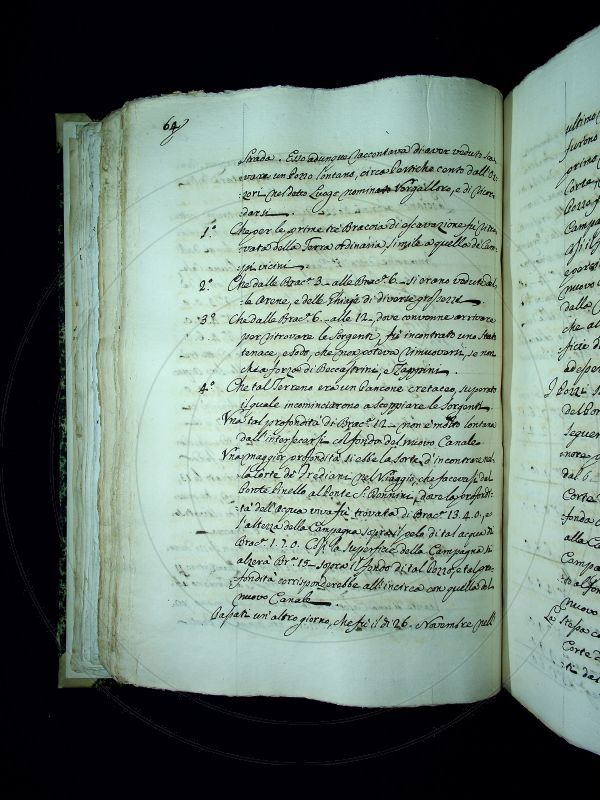 64
Strada. Esso adunque raccontava di aver veduto sca-
vare un Pozzo lontano, circa Pertiche cento dall'
nel detto Luogo nominato Vergallero, e di ricor-
darsi.
1.° Che per le prime tre Braccia di escavazione fù ritro-
vata della Terra ordinaria simile a quella de Cam-
pi vicini
2.° Che dalle Brac.a 3. alle Brac.a 6. si erano vedute del-
le Arene, e delle Ghiaje di diverse grossezze
3.° Che dalle Brac.a 6. alle 12, dove convenne arrivare
per ritrovare le Sorgenti, fù incontrato uno Strato
tenace, e sodo, che non poteva rimuoversi, se non
che a forza di Beccastrini, e Zapponi.
4.° Che tal Terreno era un Pancone cretaceo, superato
il quale incominciarono a scoppiare le Sorgenti.
Una tal profondità di Brac.a 12 non è molto lontana
dall'intersecarsi col fondo del nuovo Canale
Una maggior profondità si ebbe la Sorte d'incontrare nel-
la Corte de' Trediani nel Viaggio, che facevasi dal
Ponte Pinello al Ponte S. Ronnini, dove la profondi-
tà dell'Acqua viva fù trovata di Brac.a 13. 4. 0., e
l'altezza della Campagna sopra il pelo di tal acqua di
Brac.a 1. 7. 0. Così la Superficie della Campagna si
alzera Br.a 15 sopra il fondo di tal Pozzo, e tal pro-
fondità corrisponderebbe all'incirca con quella del
nuovo Canale
Passati un'altro giorno, che fù il dì 26. Novembre nell'
ultimo
furono
primo
Corte
Pozzo
Campa
nuovo
dalla
che al
ficie d
I Pozzi
del Pon
seguen
dal 6.
Corte
fondo
alla Ca
Campa
nuovo
La stessa
Corte